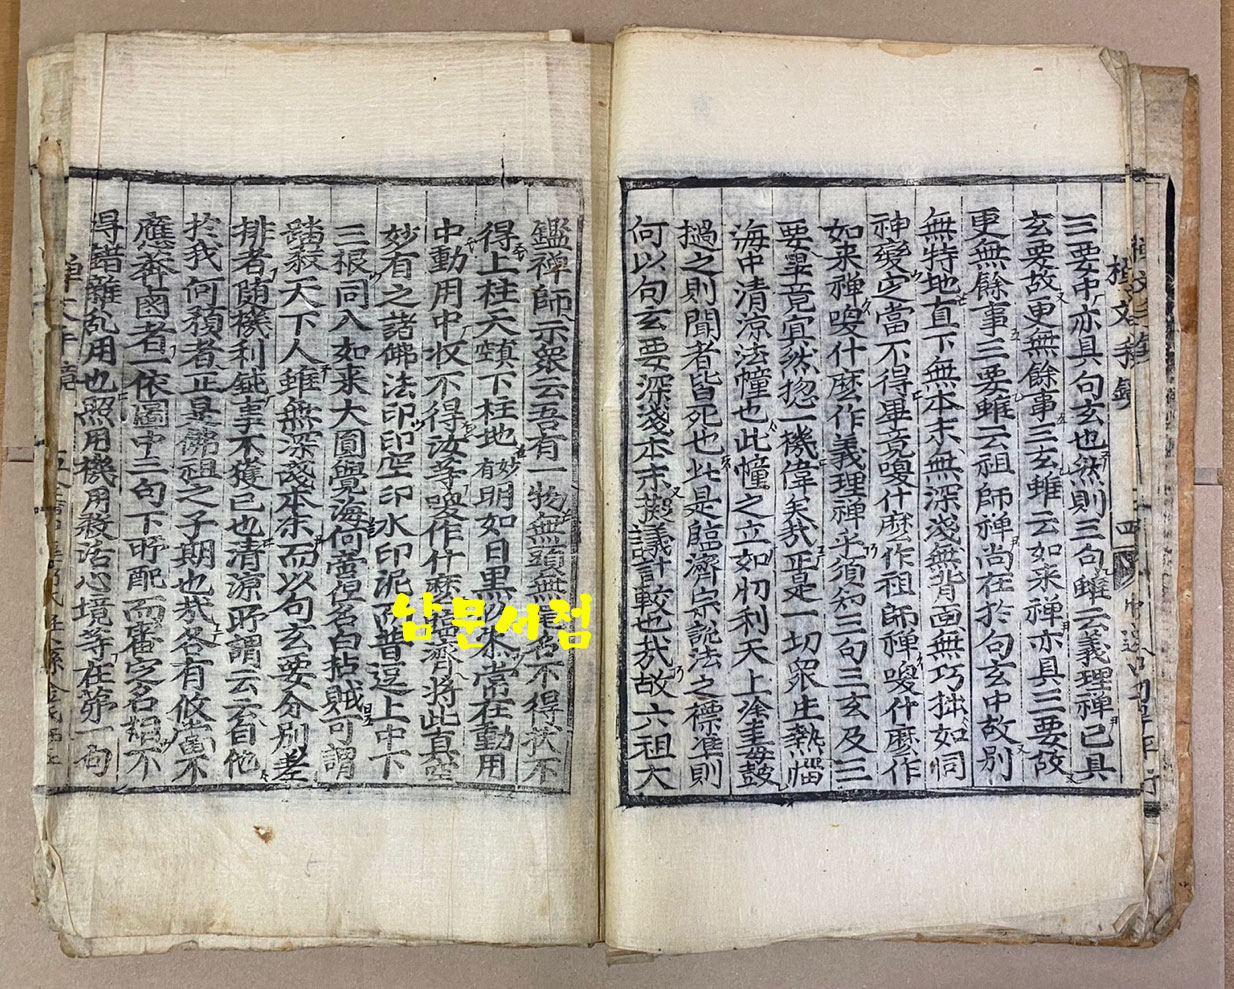 三要中亦具句玄也然則三句雖云義理禪已具
玄要故更無餘事三玄雖云如來禪亦具三要故
更無餘事三要雖云祖師禪尚在於句玄中故別
無特地直下無本末無深淺無背面無巧拙如同
神變定當不得畢竟喚什麽作祖師禪喚什麽作
如來禪喚什麽作義理禪乎須知三句三玄及三
要畢竟冥然揔一機偉矣㦲正是一切衆生熱惱
海中清凉法幢也此幢之立如忉利天上塗毒鼓
撾之則聞者皆死也此是臨濟宗說法之標准則
何以句玄要深淺本末擬議計較也㦲故六祖大
鑑禪師示衆云吾有一物無頭無
得上柱天䫴下柱地有妙明如日黑 常在動用
中動用中收不得汝等喚作什麽 濟將此真空
妙有之諸佛法印印空印水印泥而普逗上中下
三根同入如來大圓覺海何啻但名白拈賊可謂
天下人雖無深淺本末而以句玄要分別差
排者隨機利鈍事不獲已也清凉所謂云云自他
於我何預者正是佛祖之子期也㦲各有攸當不
應着圖者一依圖中三句下所配而審定名相不
得錯雜乱用也照用機用殺活心境等在第一句
남문서점